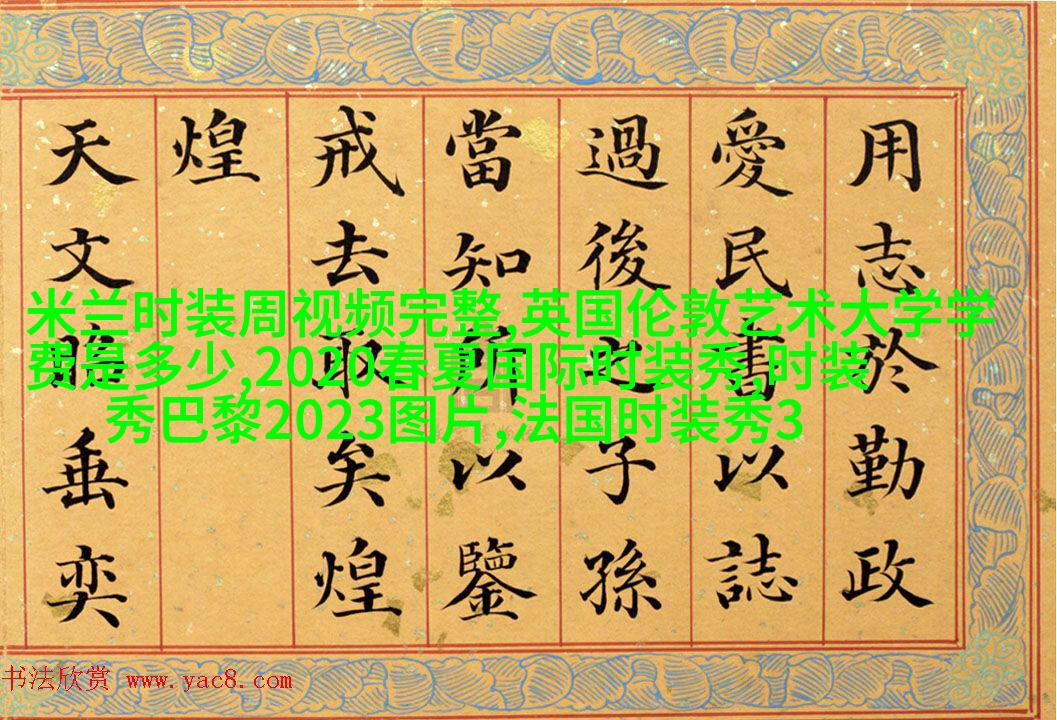 用志於勤政
愛民書以誌
過後之子孫
當知所以鑒
戒去取矣煌
煌
天文昭垂奕
米兰时装周视频完整,英国伦敦艺术大学学
费是多少,2020春夏国际时装秀,时装
秀巴黎2023图片,法国时装秀3
书法欣赏 www.yac8.com